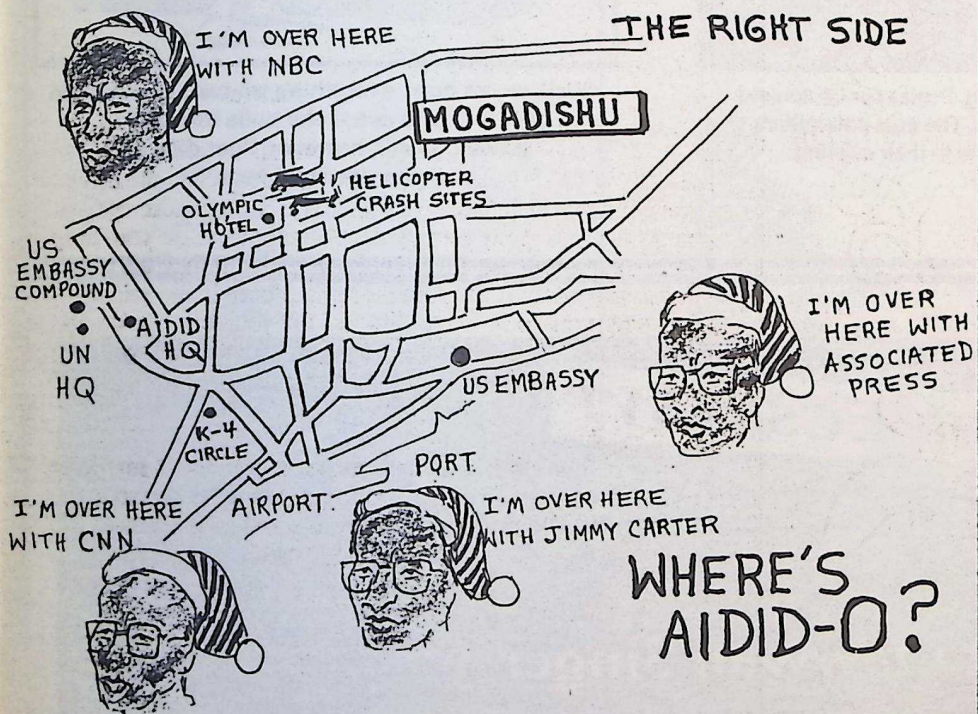 THE RIGHT SIDE
I'M OVER HERE
WITH NBC
MOGADISHU
HELICOPTER
CRASH SITES
OLYMPIC
HOTEL
US
EMBASSY
COMPOUND
AIDID
HQ
UN
HQ
I'M OVER
HERE WITH
ASSOCIATED
PRESS
US EMBASSY
K-4
CIRCLE
PORT.
AIRPORT.
I'M OVER HERE
WITH CNN
I'M OVER HERE
WITH JIMMY CARTER
WHERE'S
AIDID-O?